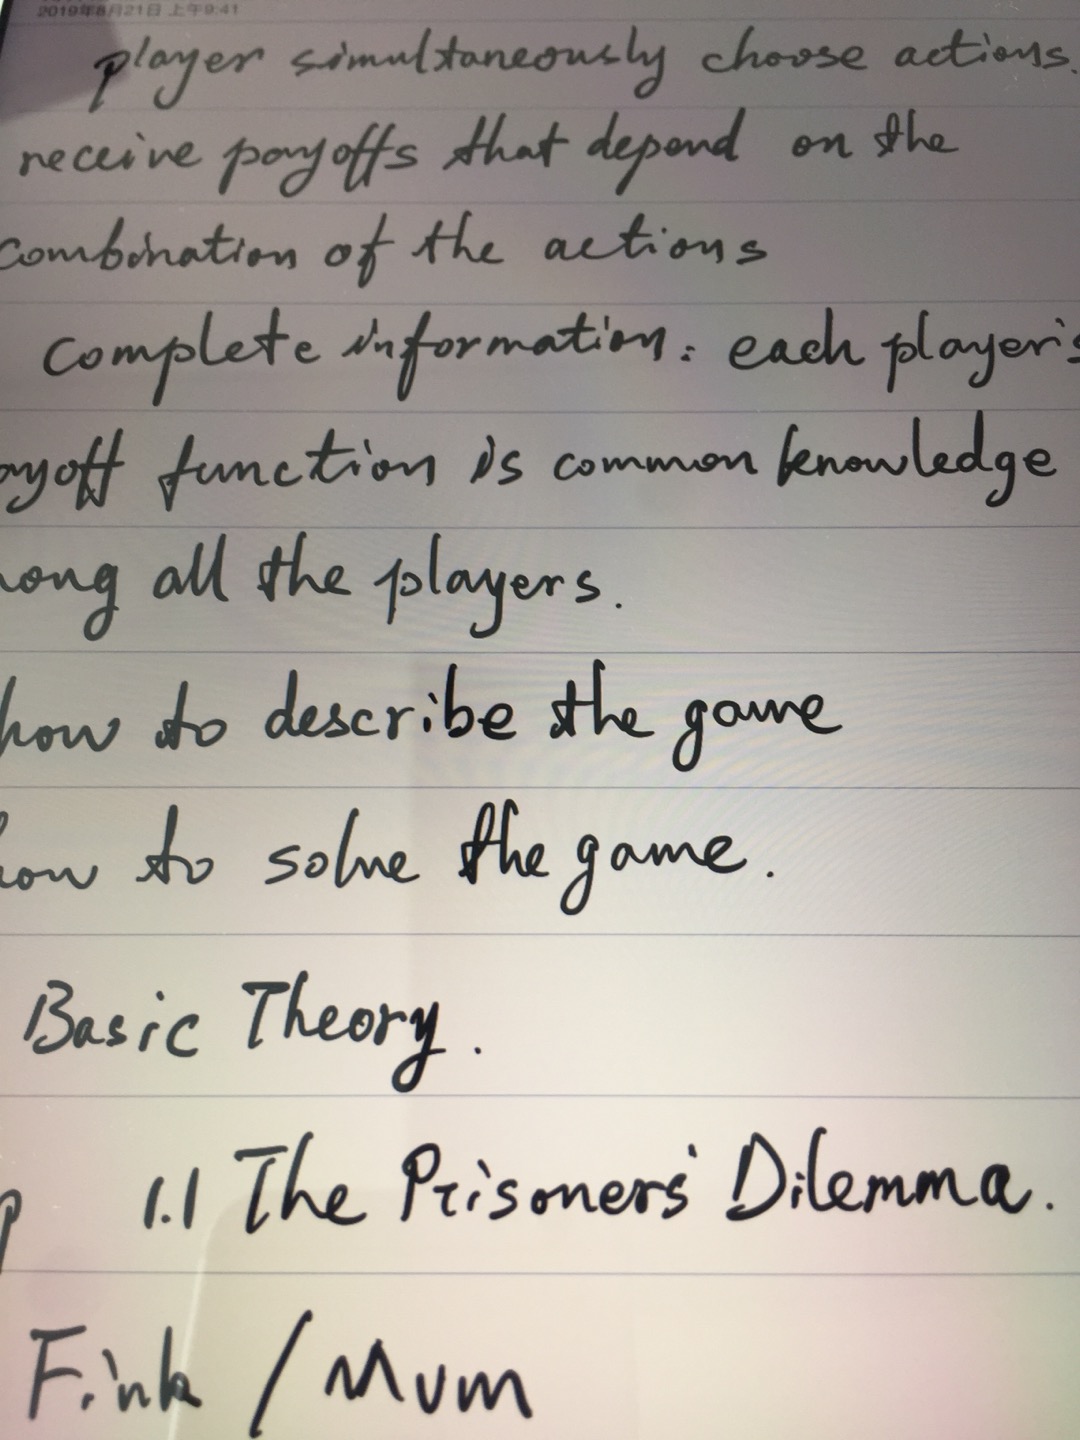 2019年8月21日 上午9:41
player simultaneously choose actions.
receive payoffs that depend on the
combination of the actions
complete information: each player's
ayoff function is common knowledge
ong all the players.
how to describe the game
how to solve the game.
Basic Theory.
1.1 The Prisoners' Dilemma.
Fink / Mum